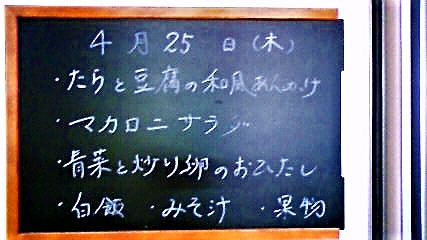 4月25日(木)
・たらと豆腐の和風あんかけ
・マカロニサラダ
・青菜と炒り卵のおひたし
・白飯 ・みそ汁 ・果物